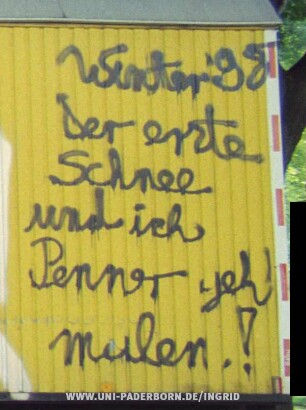 Winter '98
Der erste
Schnee
und ich
Penner geh
malen!
WWW.UNI-PADERBORN.DE/INGRID